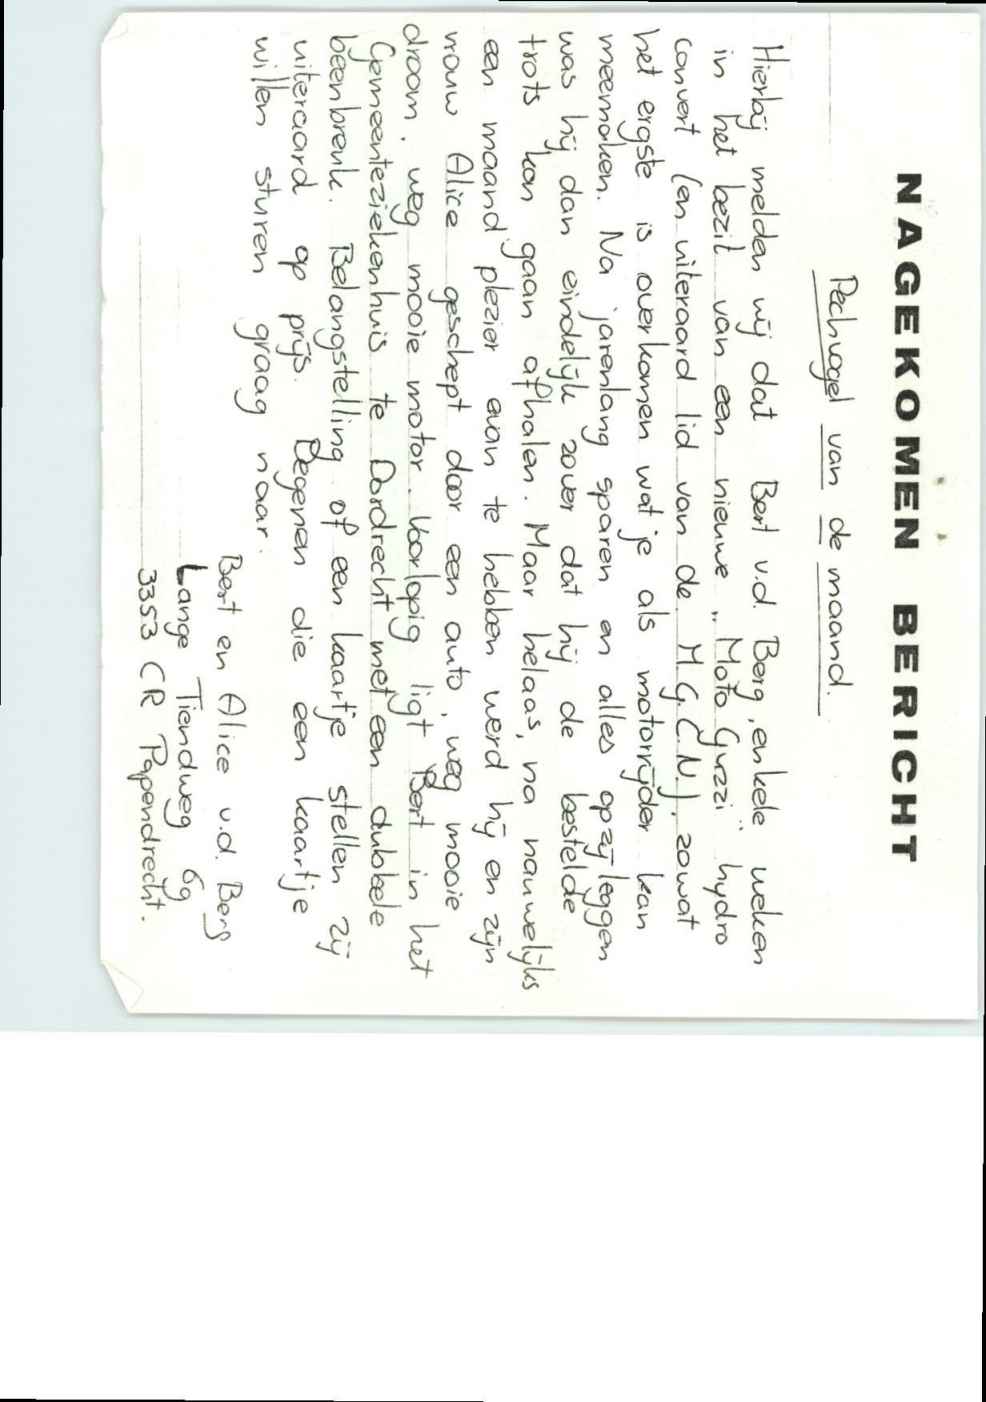 NAGEKOMEN BERICHT
Pechvogel van de maand.
Hierbij melden wij dat Bert v.d. Berg, enkele weken
in het bezit van een nieuwe „Moto Guzzi" hydro
convert (en uiteraard lid van de M.G.C.N.), zowat
het ergste is overkomen wat je als motorrijder kan
meemaken. Na jarenlang sparen en alles opzij leggen
was hij dan eindelijk zover dat hij de bestelde
trots kon gaan afhalen. Maar helaas, na nauwelijks
een maand plezier ervan te hebben werd hij en zijn
vrouw Alice geschept door een auto, weg mooie
droom, weg mooie motor. Voorlopig ligt Bert in het
Gemeenteziekenhuis te Dordrecht met een dubbele
beenbreuk. Belangstelling of een kaartje stellen zij
uiteraard op prijs. Degenen die een kaartje
willen sturen graag naar:
Bert en Alice v.d. Berg
Lange Tiendweg 69
3353 CR Papendrecht.